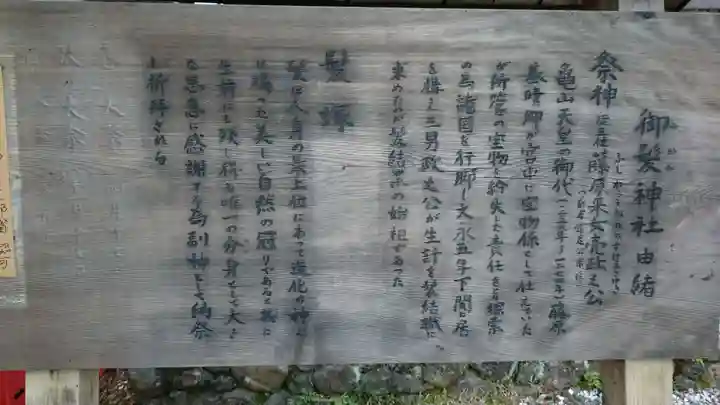 御髪神社 由緒
みかみ
祭神 従五位藤原采女亮政之公
亀山天皇の御代(一二五九年〜一二七四年)藤原
基晴卿が宮中に宝物係として仕えていた
が所管の宝物を紛失した責任をとり探索
の為諸国を行脚し文永五年下関に居
を構え三男政之公が生計を髪結職に
求めたのが髪結業の始祖であった
髪塚
髪は人身の最上位にあって造化の神より
賜った美しい自然の冠りであると共に
生前にも残し得る唯一の分身として大き
な恩恵に感謝する為副神として納祭
し祈拝される